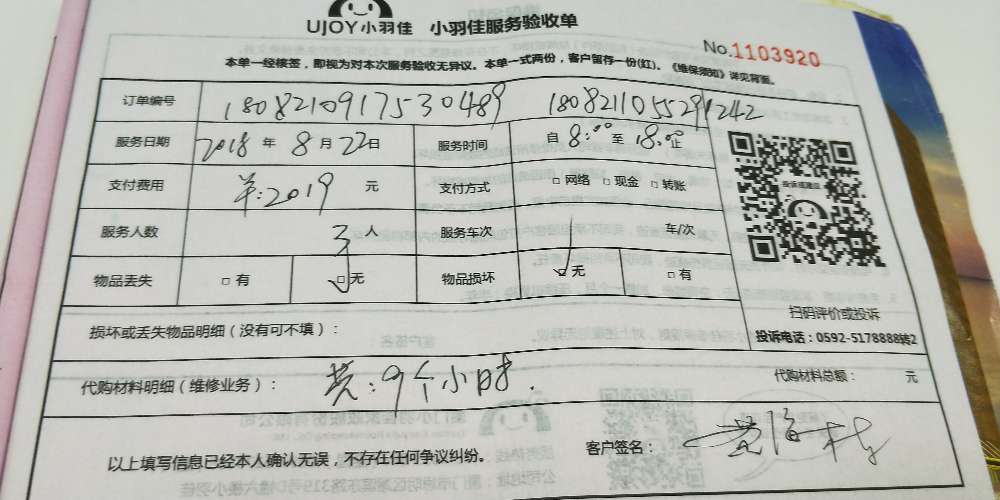 UJOY小羽佳 小羽佳服务验收单
No.1103920
本单一经核签，即视为对本次服务验收无异议。本单一式两份，客户留存一份(红)。《维保须知》详见背面。
订单编号 1808210917530489 1808211055291242
服务日期 2018 年 8 月 22 日 服务时间 自 8:00 至 18:00 止
支付费用 羊:2019 元 支付方式 □网络 □现金 □转账
服务人数 3 人 服务车次 1 车/次
物品丢失 □有 □无 物品损坏 □无 □有
投诉或建议
扫码评价或投诉
投诉电话：0592-5178888转2
损坏或丢失物品明细（没有可不填）：
代购材料明细（维修业务）： 共:9个小时. 代购材料总额： 元
以上填写信息已经本人确认无误，不存在任何争议纠纷。 客户签名：